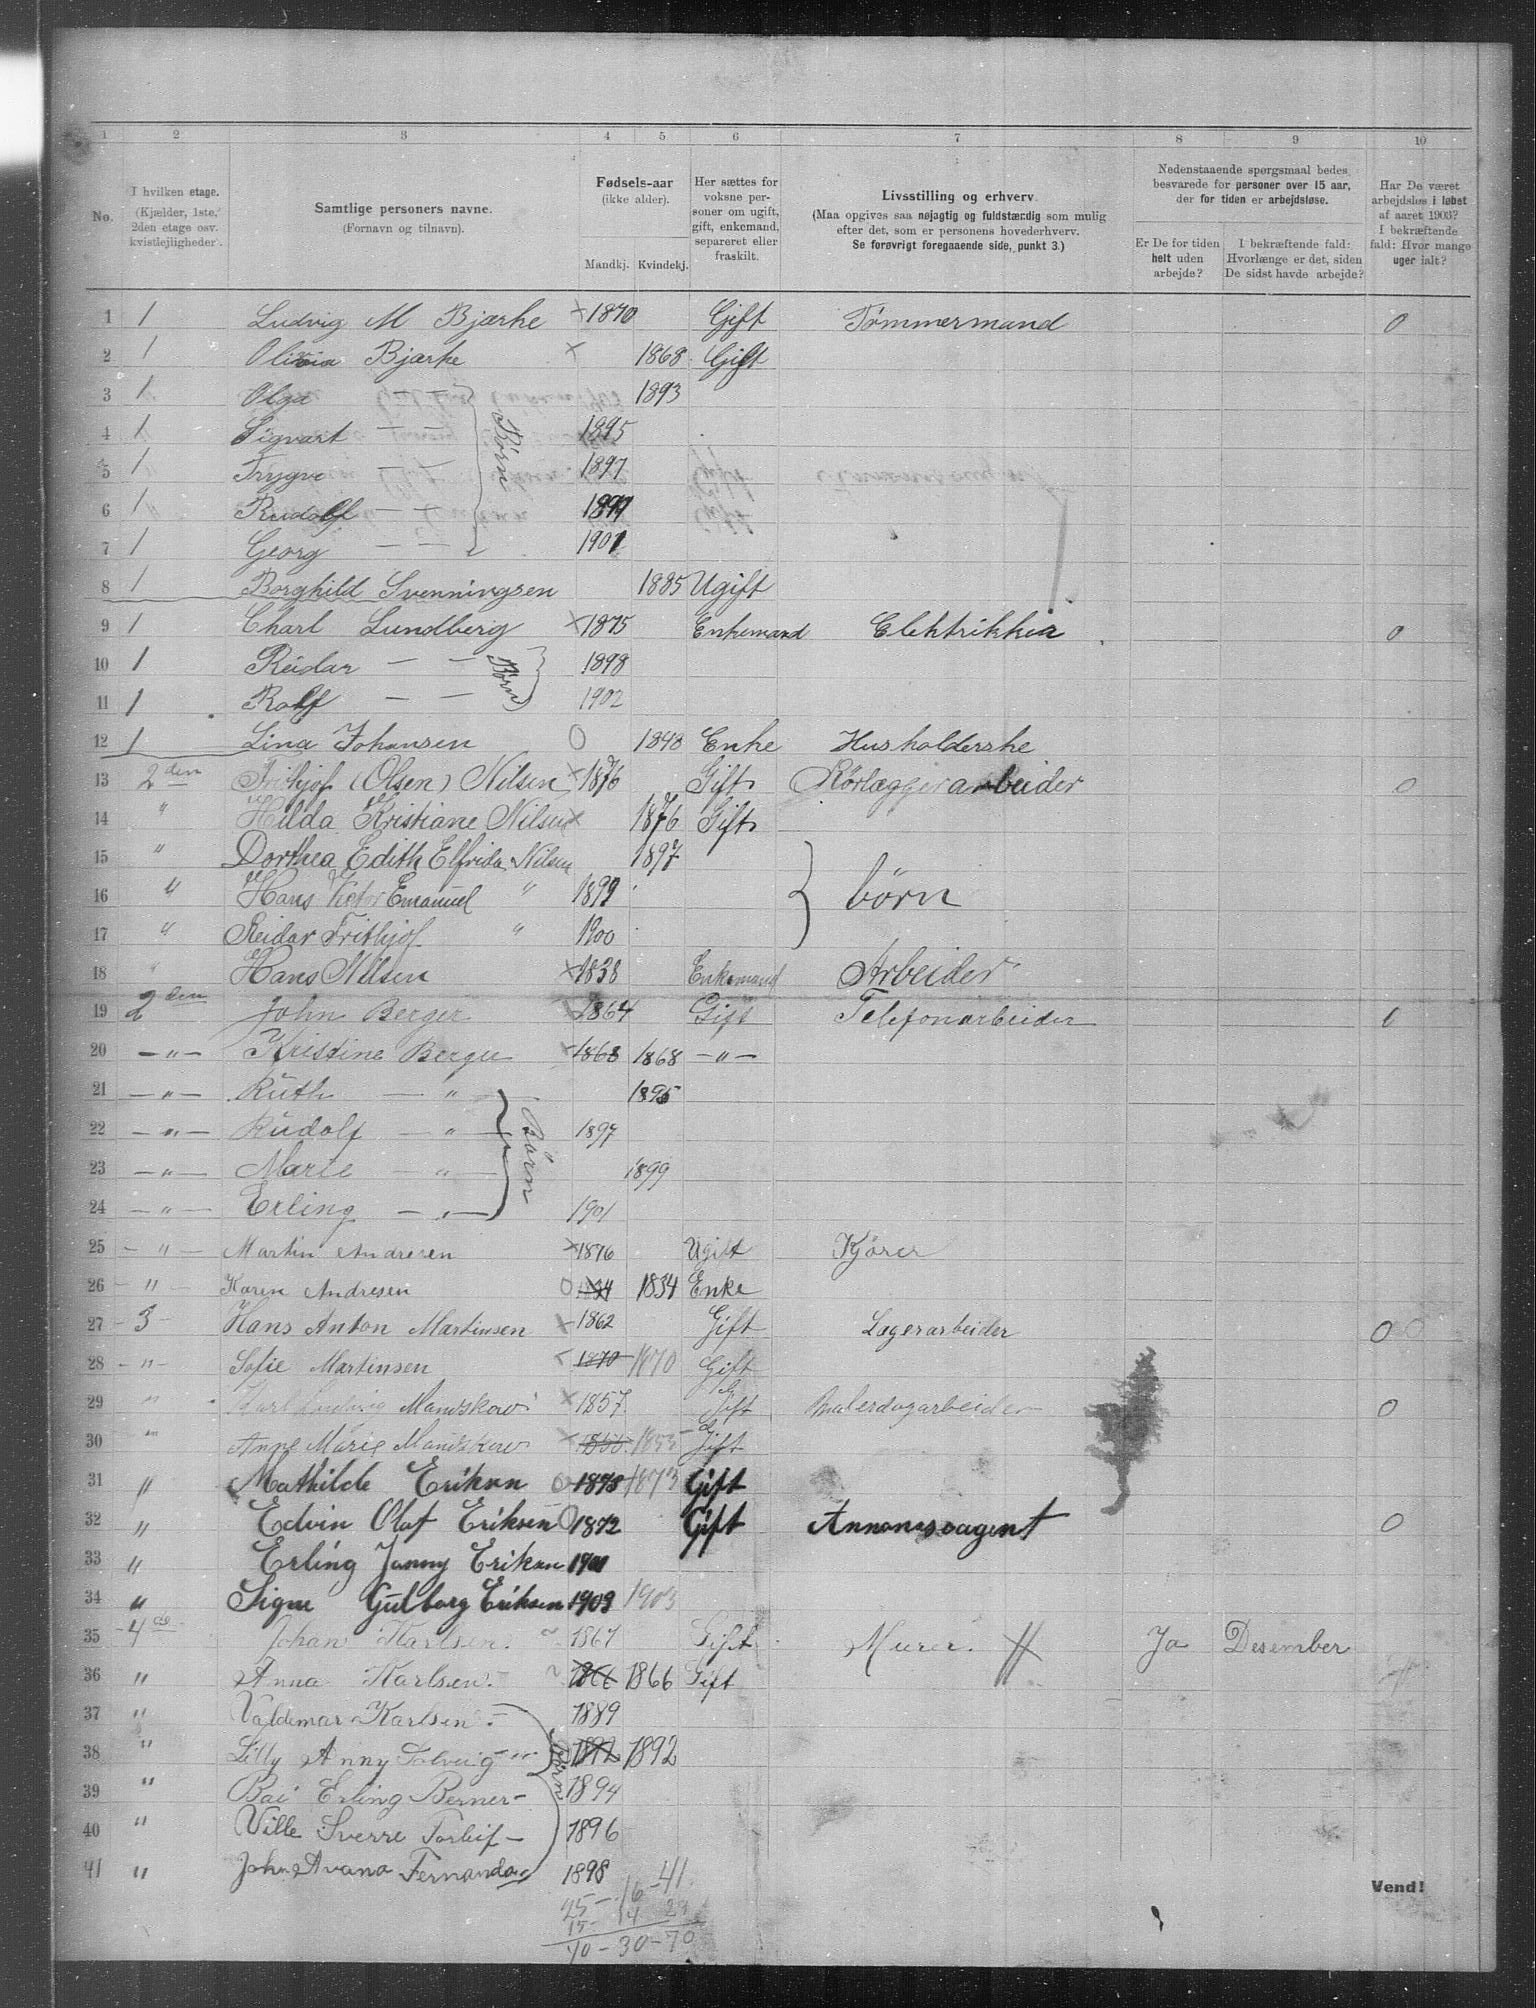 1 2 3 4 5 6 7 8 9 10
No.
I hvilken etage. (Kjælder, 1ste, 2den etage osv. kvistlejligheder).
Samtlige personers navne. (Fornavn og tilnavn).
Fødsels-aar (ikke alder).
Mandkj. Kvindekj.
Her sættes for voksne personer om ugift, gift, enkemand, separeret eller fraskilt.
Livsstilling og erhverv.
(Maa opgives saa nøjagtig og fuldstændig som mulig efter det, som er personens hovederhverv.
Se forøvrigt foregaaende side, punkt 3.)
Nedenstaaende spørgsmaal bedes besvarede for personer over 15 aar, der for tiden er arbejdsløse.
Er De for tiden helt uden arbejde?
I bekræftende fald: Hvorlænge er det, siden De sidst havde arbejde?
Har De været arbejdsløs i løbet af aaret 1903? I bekræftende fald: Hvor mange uger ialt?
1 1 Ludvig M Bjærke × 1870 Gift Tømmermand 0
2 1 Olivia Bjærke × 1868 Gift
3 1 Olga — — 1893
4 1 Sigvart — — 1895
5 1 Trygve — — 1897
6 1 Rudolf — — 1899
7 1 Georg — — 1901
Børn
8 1 Borghild Svenningsen 1885 Ugift
9 1 Charl Lundberg × 1875 Enkemand Elektrikker 0
10 1 Reidar — — 1898
11 1 Rolf — — 1902
Børn
12 1 Lina Johansen 0 1848 Enke Husholderske
13 2den Frithjof (Olsen) Nilsen × 1876 Gift Rørlæggerarbeider 0
14 " Hilda Kristiane Nilsen × 1876 Gift
15 " Dorthea Edith Elfrida Nilsen 1897
16 " Hans Victor Emanuel " 1899 børn
17 " Reidar Frithjof " 1900
18 " Hans Nilsen × 1838 Enkemand Arbeider
19 2den John Berger × 1864 Gift Telefonarbeider 0
20 —"— Kristine Berger × 1868 1868 —"—
21 —"— Ruth — " 1895
22 —"— Rudolf — " 1897
23 —"— Marie — " 1899
24 —"— Erling — " 1901
Børn
25 —"— Martin Andresen × 1876 Ugift Kjører
26 —"— Karen Andresen 0 1834 1834 Enke
27 3 Hans Anton Martinsen × 1862 Gift Lagerarbeider 0 0
28 —"— Sofie Martinsen × 1870 1870 Gift
29 " Karl Ludvig Mandskow × 1857 Gift Malerdagarbeider 0
30 " Anne Marie Mandskow × 1853 Gift
31 " Mathilde Eriksen 0 1873 1873 Gift
32 " Edvin Olaf Eriksen 0 1872 Gift Annonsoagent 0
33 " Erling Janny Eriksen 1901
34 " Signe Gulborg Eriksen 1903 1903
35 4 Johan Karlsen. 1867 Gift Murer. Ja Desember
36 " Anna Karlsen. 1866 1866 Gift
37 " Valdemar Karlsen 1889
38 " Lilly Anny Solveig —"— 1892 1892
39 " Bai Erling Berner — 1894
40 " Ville Sverre Torleif — 1896
41 " John Avano Fernando 1898
Børn
Vend!
25 — 16 — 41
15 — 14 29
40 — 30 — 70